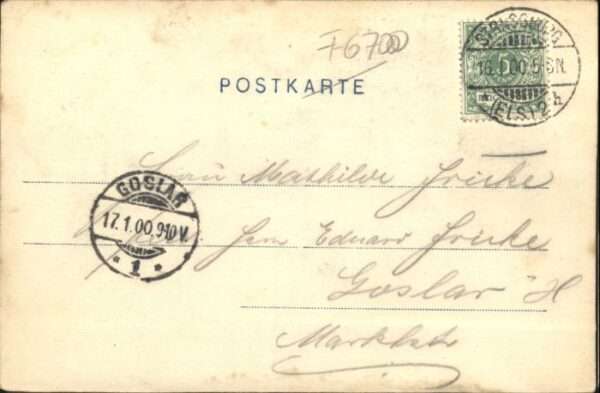 F6700
POSTKARTE
STRASSBURG
16.1.00.5-6N.
(ELS.) 2 h
Frau Mathilde Fricke
GOSLAR
17.1.00.9-10V.
* 1 *
Herrn Eduard Fricke
Goslar H
Marktstr